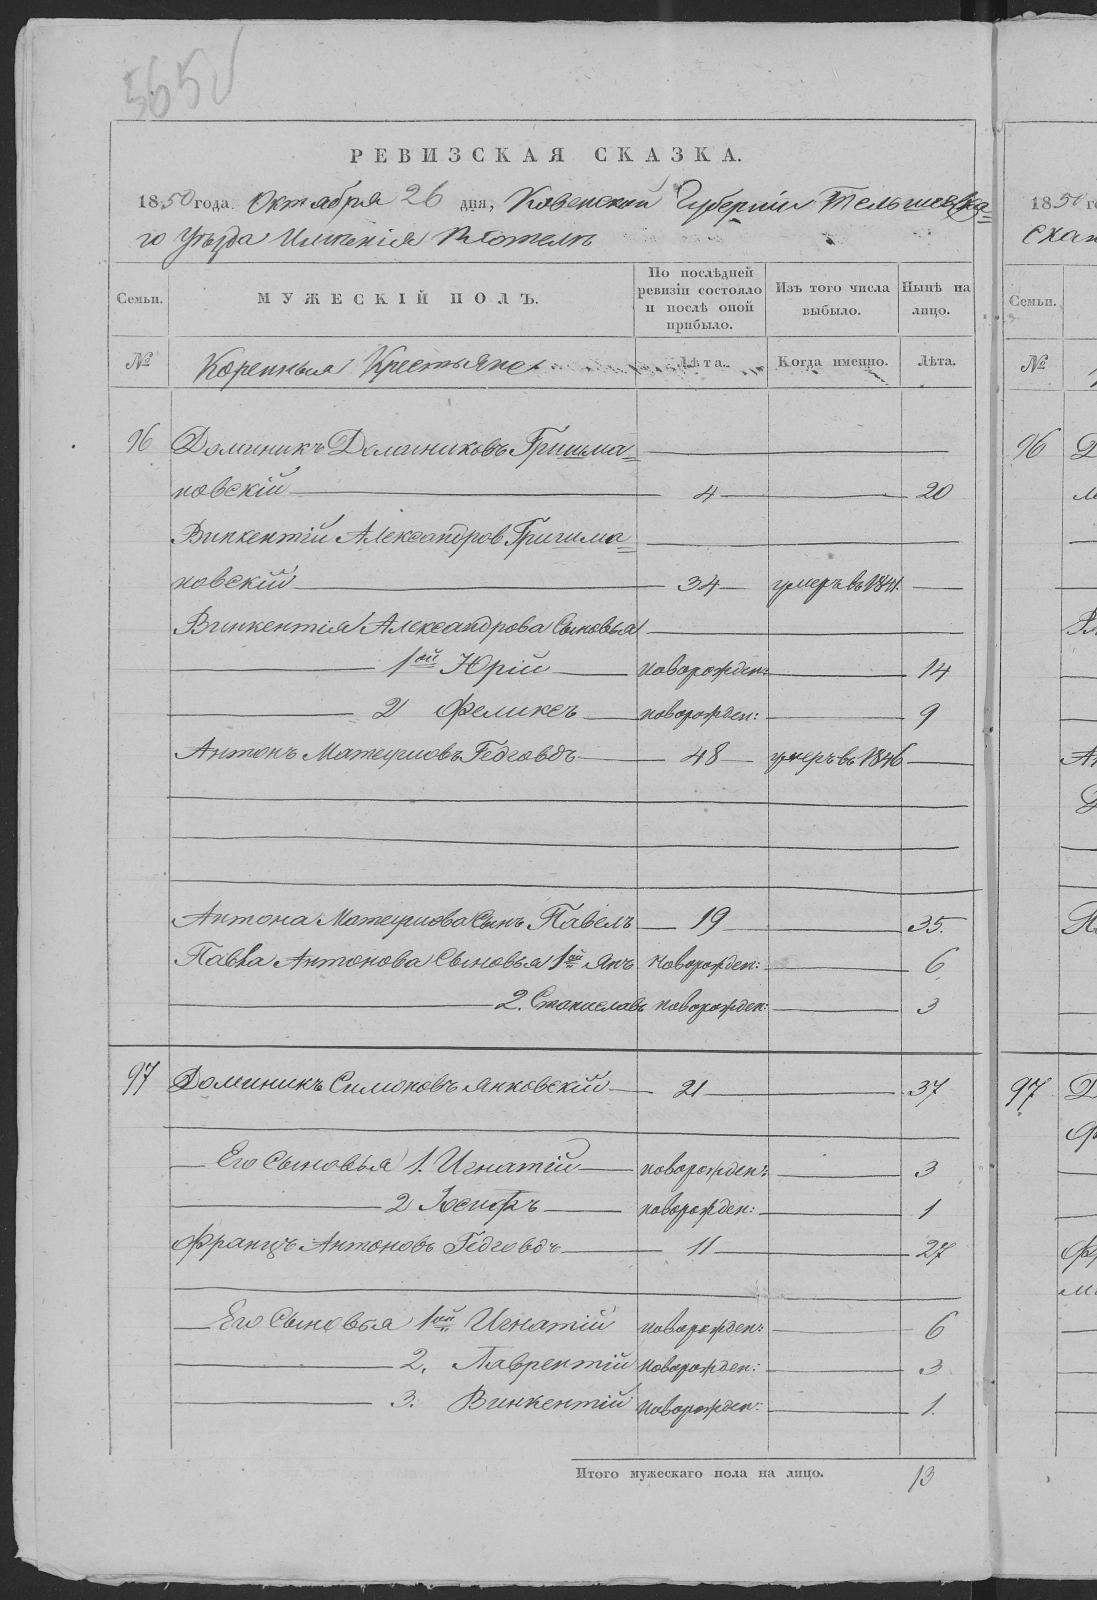 565
РЕВИЗСКАЯ СКАЗКА.
1850 года Октября 26 дня, Ковенской Губерніи Тельшевска=
го Уѣзда Имѣнія Плотель
Семьи.
МУЖЕСКІЙ ПОЛЪ.
По послѣдней ревизіи состояло и послѣ оной прибыло.
Изъ того числа выбыло.
Нынѣ на лицо.
№
Коренныя Крестьяне
Лѣта.
Когда именно.
Лѣта.
96 Доминикъ Доминиковъ Гришма=
новскій 4 20
Викентій Александров Гришма=
новскій 34 умеръ въ 1841.
Винкентія Александрова Сыновья
1ой Юрій новорожден: 14
2 Феликсъ новорожден: 9
Антонъ Матеушовъ Гедговдъ 48 умеръ въ 1846
Антона Матеушова Сынъ Павелъ 19 35.
Павла Антонова Сыновья 1ой Янъ новорожден: 6
2. Станиславъ новорожден: 3
97 Доминикъ Симоновъ Янковскій 21 37
Его Сыновья 1. Игнатій новорожден: 3
2 Іосифъ новорожден: 1
Францъ Антоновъ Гедговдъ 11 27
Его Сыновья 1ой Игнатій новорожден: 6
2. Лаврентій новорожден: 3
3. Винкентій новорожден: 1.
Итого мужескаго пола на лицо. 13
1850
Семьи.
№
96
97